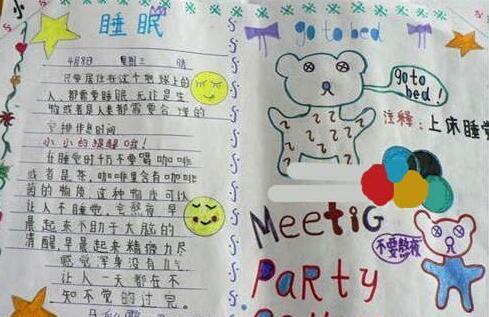 睡眠
4月8日 星期三 晴
只要居住在这个地球上的
人,都需要睡眠,无论是生
物或者是人类都需要合理的
安排作息时间
小小的提醒哦!
在睡觉时千万不要喝咖啡
或者是茶,咖啡里含有咖啡
因的物质,这种物质可以
让人不睡觉,会熬夜,早
晨起来不助于大脑的
清醒,早晨起来精神力尽
感觉浑身没有力气
让人一天都在不
知不觉的过完。
go to bed
go to
bed!
注释:上床睡觉
MeetiG
PaRty
不要熬夜